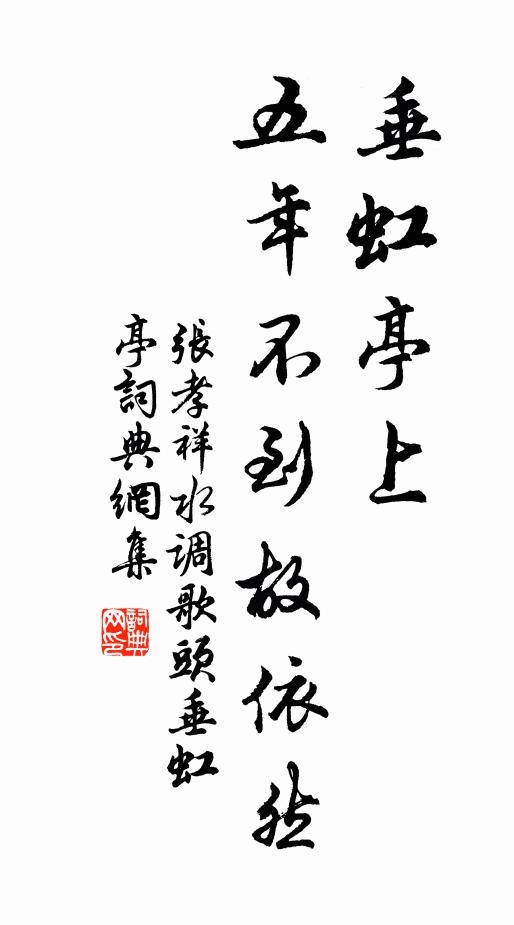 垂虹亭上
五年不到故依然
張孝祥水调歌頭垂虹
亭詞典網集
詞典
网印